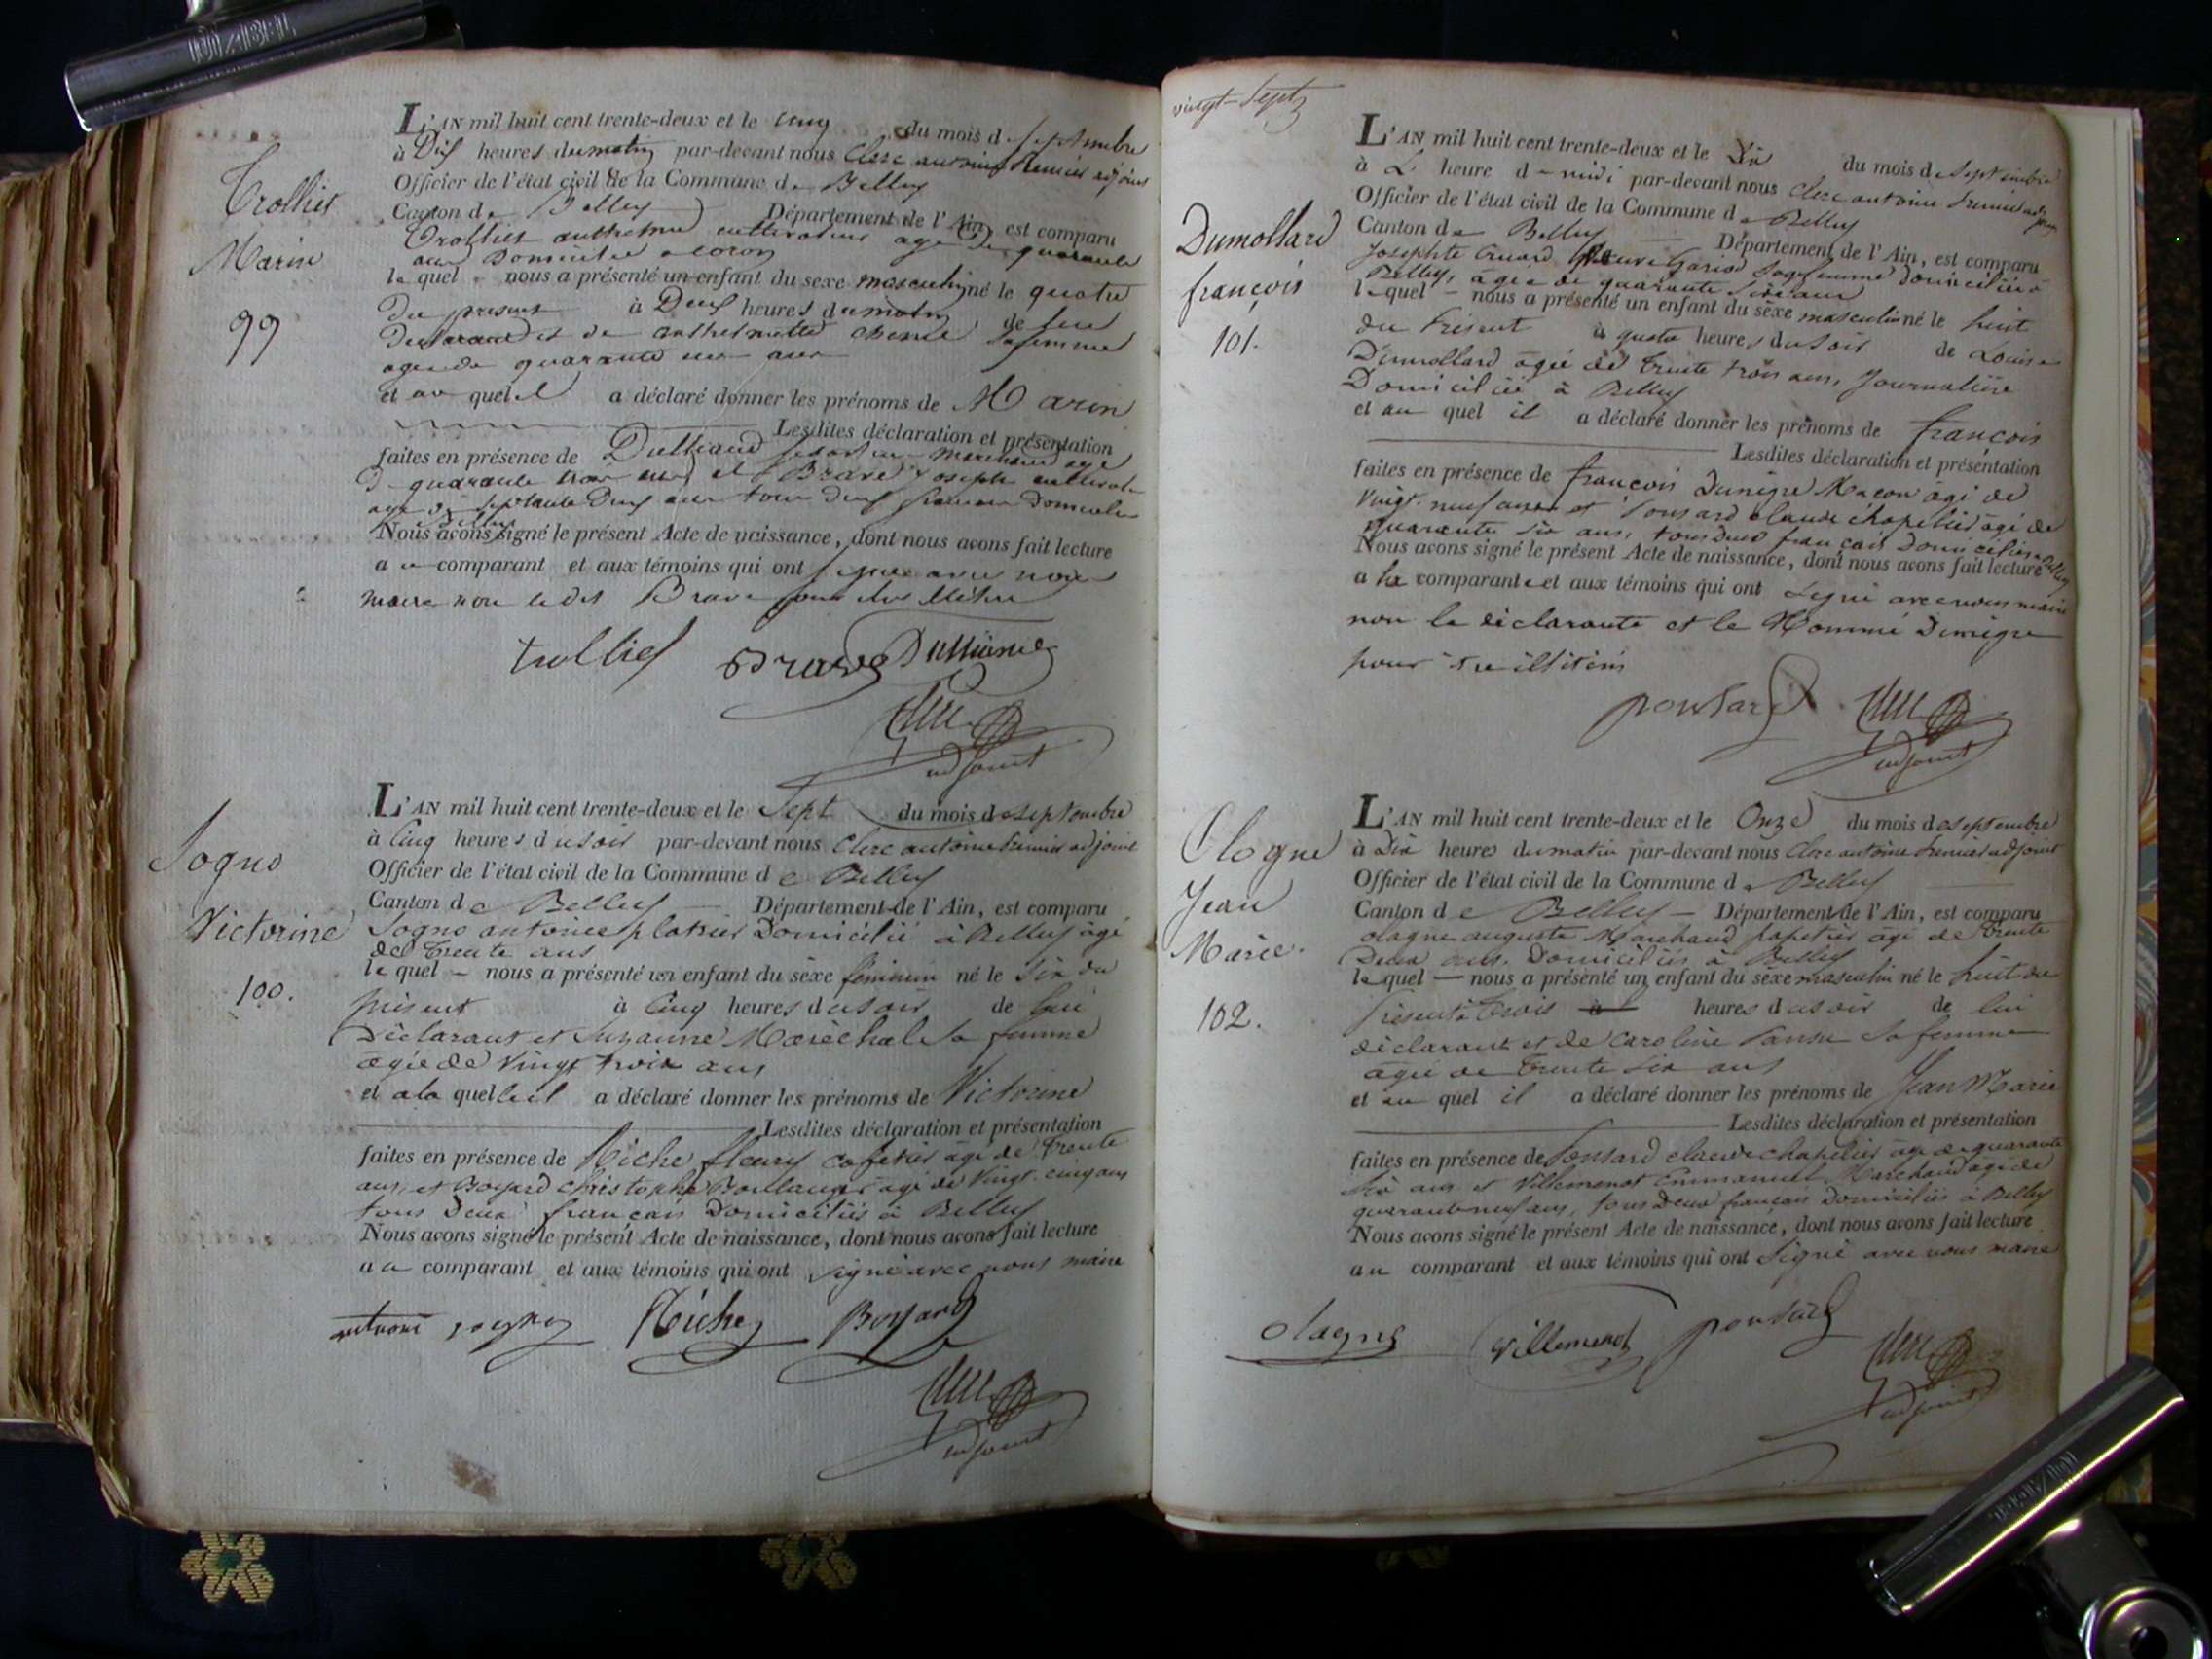 Trollier
Marin
99
L'AN mil huit cent trente-deux et le cinq du mois de septembre
à Dix heures du matin par-devant nous Clerc antoine premier adjoint
Officier de l'état civil de la Commune de Belley
Canton de Belley Département de l'Ain, est comparu
Trollier cultivateur agé de quarante
ans Domicilié a
lequel nous a présenté un enfant du sexe masculin né le quatre
du present à Deux heures du matin de lui
Declarant et de anthelmette sa femme
agee de quarante ans
et au quel il a déclaré donner les prénoms de Marin
Lesdites déclaration et présentation
faites en présence de marchand age
de quarante trois ans et Brave Joseph
age de septante Deux ans tous deux francais Domicilies
a Belley
Nous avons signé le présent Acte de naissance, dont nous avons fait lecture
au comparant et aux témoins qui ont signe avec nous
maire non ledit Brave pour
trollier Brave
Clerc
adjoint
Sogno
Victorine
100.
L'AN mil huit cent trente-deux et le Sept du mois de septembre
à Cinq heures du soir par-devant nous Clerc antoine premier adjoint
Officier de l'état civil de la Commune de Belley
Canton de Belley Département de l'Ain, est comparu
Sogno antoine platrier Domicilié à Belley âgé
de Trente ans
lequel nous a présenté un enfant du sèxe féminin né le Six du
présent à Cinq heures du soir de lui
Déclarant et Suzanne Maréchal Sa femme
âgée de Vingt trois ans
et a la quelle il a déclaré donner les prénoms de Victorine
Lesdites déclaration et présentation
faites en présence de Riche fleury cafetier âgé de Trente
ans, et Boyard christophe Boulanger âgé de Vingt cinq ans
tous Deux français Domiciliés à Belley
Nous avons signé le présent Acte de naissance, dont nous avons fait lecture
au comparant et aux témoins qui ont signé avec nous maire
antoine sogno Riche Boyard
Clerc
adjoint
vingt-Sept
Dumollard
françois
101.
L'AN mil huit cent trente-deux et le Dix du mois de Septembre
à L' heure de midi par-devant nous Clerc antoine premier adjoint
Officier de l'état civil de la Commune de Belley
Canton de Belley Département de l'Ain, est comparu
Josephte Veuve Sage femme Domiciliée à
Belley, âgée de quarante ans
lequel nous a présenté un enfant du sèxe masculin né le huit
du Présent à quatre heures du soir de Louise
Dumollard âgée de Trente trois ans, Journalière
Domiciliée à Belley
et au quel il a déclaré donner les prénoms de françois
Lesdites déclaration et présentation
faites en présence de françois Dunègre Maçon âgé de
Vingt-neuf ans et Ponsard claude chapelier âgé de
quarante Six ans, tous Deux français Domiciliés à Belley
Nous avons signé le présent Acte de naissance, dont nous avons fait lecture
a la comparante et aux témoins qui ont Signé avec nous maire
non la déclarante et le Nommé Dunègre
pour
ponsard Clerc
adjoint
Ologne
Jean
Marie.
102.
L'AN mil huit cent trente-deux et le Onze du mois de septembre
à Dix heures du matin par-devant nous Clerc antoine premier adjoint
Officier de l'état civil de la Commune de Belley
Canton de Belley Département de l'Ain, est comparu
olagne auguste Marchand papetier âgé de Trente
Deux ans. Domicilié à Belley
lequel nous a présenté un enfant du sèxe masculin né le huit du
Présent à Trois à heures du soir de lui
déclarant et de Caroline Sa femme
âgée de Trente Six ans
et au quel il a déclaré donner les prénoms de Jean Marie
Lesdites déclaration et présentation
faites en présence de Ponsard claude chapelier âgé de quarante
Six ans et Villemenot Emmanuel Marchand âgé de
quarante neuf ans, tous Deux français Domiciliés à Belley
Nous avons signé le présent Acte de naissance, dont nous avons fait lecture
au comparant et aux témoins qui ont Signé avec nous maire
olagne Villemenot ponsard
Clerc
adjoint